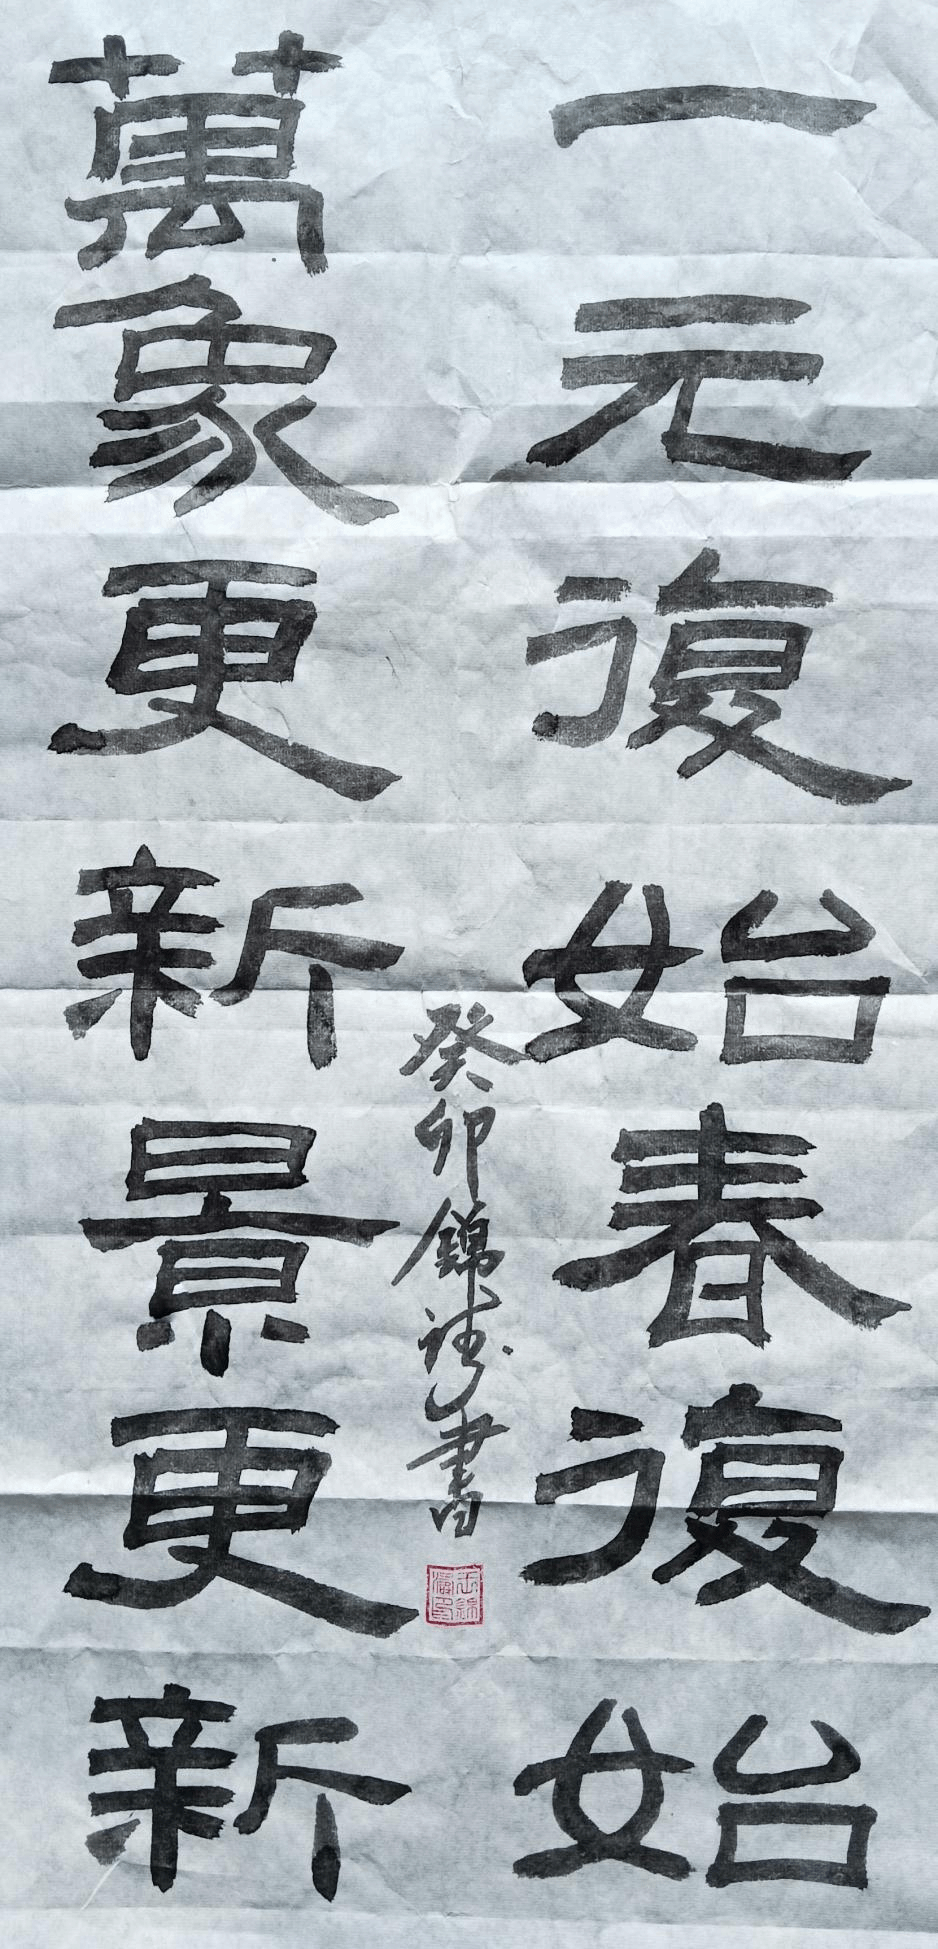 一元復始春復始
萬象更新景更新
癸卯錦濤書